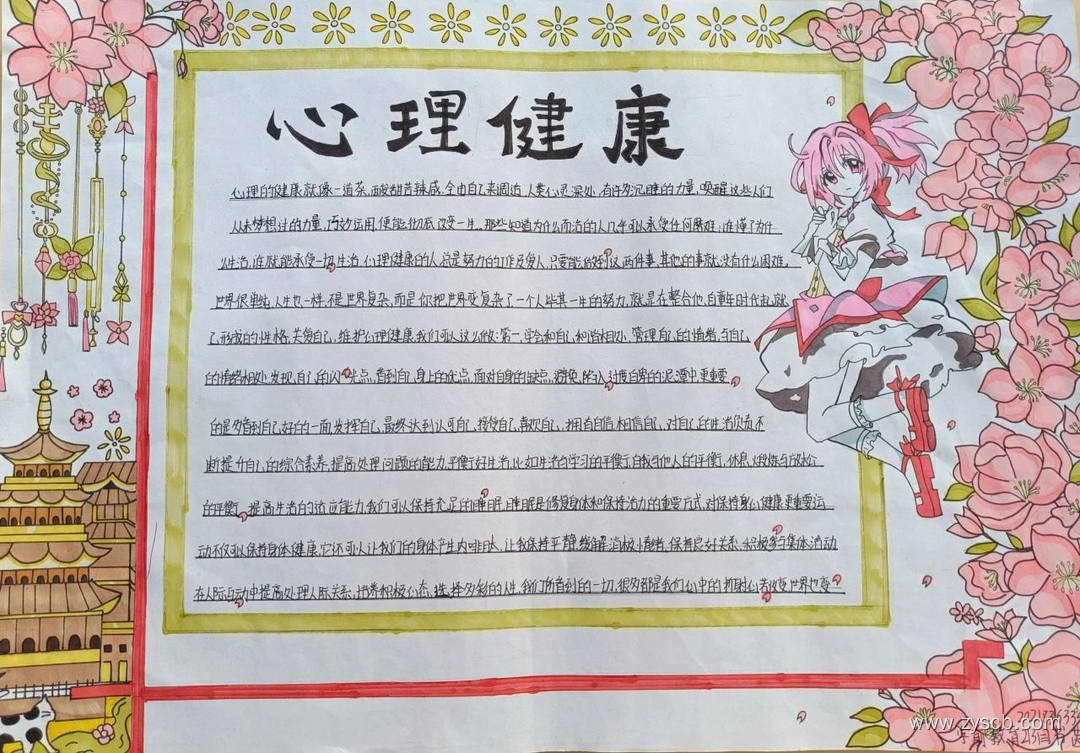 心理健康
心理的健康就像一道茶，酸甜苦辣咸，全由自己来调治，人类心灵深处，有许多沉睡的力量，唤醒这些人们
从未梦想过的力量，巧妙运用，便能彻底改变一生。那些知道为什么而活的人几乎可以承受任何磨难，谁懂了为什
么生活，谁就能承受一切生活，心理健康的人总是努力的工作及爱人，只要能做到这两件事，其他的事就没有什么困难。
世界很单纯，人生也一样，不是世界复杂，而是你把世界变复杂了一个人毕其一生的努力，就是在整合他自童年时代起就
已形成的性格，关爱自己，维护心理健康，我们可以这么做：第一，学会和自己和谐相处，管理自己的情绪，与自己
的情绪相处发现自己的闪光点，看到自己身上的优点，面对自身的缺点，避免陷入过度自卑的泥潭中更重要
的是多看到自己好的一面，发挥自己，最终达到认可自己，接受自己，喜欢自己，拥有自信，相信自己，对自己的生活负责不
断提升自己的综合素养，提高处理问题的能力，平衡好生活，比如生活与学习的平衡，自我与他人的平衡，休息，锻炼与放松
的平衡，提高生活的适应能力我们可以保持充足的睡眠，睡眠是修复身体和保持活力的重要方式，对保持身心健康更重要运
动不仅可以保持身体健康，它还可以让我们的身体产生内啡肽，让我保持平静，缓解消极情绪，保持良好关系，积极参与集体活动
在人际互动中提高处理人际关系，培养积极心态，选择多彩的人生，我们所看到的一切，很多都是我们心中的折射心若改变世界也变
www.zyscb.com